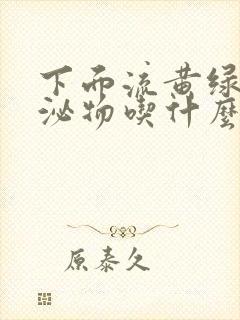 下而流黄绿
泌物喫什麼
原泰久